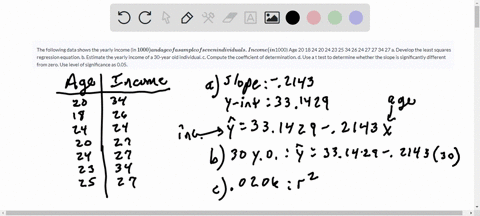 The following data shows the yearly income (in 1000)andageofasampleofsevenindividuals.Income(in1000) Age 20 18 24 20 24 23 25 34 26 24 27 27 34 27 a. Develop the least squares
regression equation. b. Estimate the yearly income of a 30-year old individual. c. Compute the coefficient of determination. d. Use a t test to determine whether the slope is significantly different
from zero. Use level of significance as 0.05.
Age Income
20 34
18 26
24 24
20 27
24 27
23 34
25 27
a) slope: -.2143
y-int: 33.1429
age
inc. → ŷ = 33.1429 - .2143 x
b) 30 y.o.: ŷ = 33.1429 - .2143 (30)
c) .0206 : r²